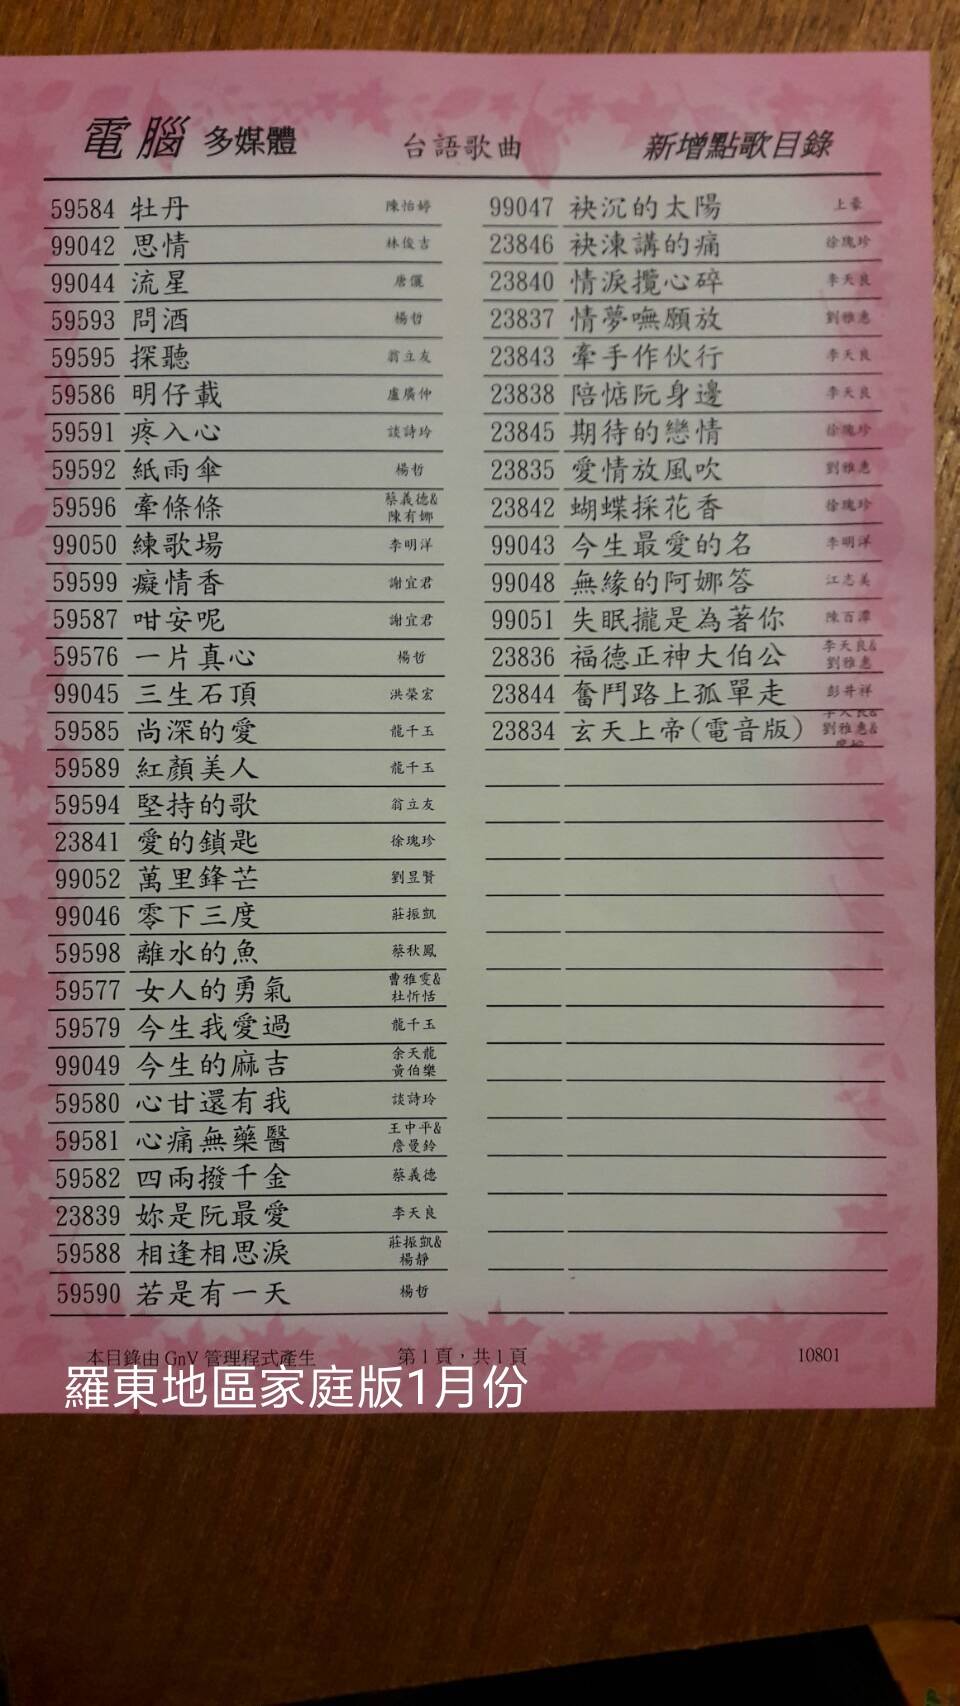 電腦 多媒體 台語歌曲 新增點歌目錄
59584 牡丹 陳怡婷
99042 思情 林俊吉
99044 流星 唐儷
59593 問酒 楊哲
59595 探聽 翁立友
59586 明仔載 盧廣仲
59591 疼入心 談詩玲
59592 紙雨傘 楊哲
59596 牽條條 蔡義德&
陳有娜
99050 練歌場 李明洋
59599 癡情香 謝宜君
59587 咁安呢 謝宜君
59576 一片真心 楊哲
99045 三生石頂 洪榮宏
59585 尚深的愛 龍千玉
59589 紅顏美人 龍千玉
59594 堅持的歌 翁立友
23841 愛的鎖匙 徐瑰珍
99052 萬里鋒芒 劉昱賢
99046 零下三度 莊振凱
59598 離水的魚 蔡秋鳳
59577 女人的勇氣 曹雅雯&
杜忻恬
59579 今生我愛過 龍千玉
99049 今生的麻吉 余天龍
黃伯樂
59580 心甘還有我 談詩玲
59581 心痛無藥醫 王中平&
詹曼鈴
59582 四兩撥千金 蔡義德
23839 妳是阮最愛 李天良
59588 相逢相思淚 莊振凱&
楊靜
59590 若是有一天 楊哲
99047 袂沉的太陽 上豪
23846 袂湅講的痛 徐瑰珍
23840 情淚攬心碎 李天良
23837 情夢嘸願放 劉雅惠
23843 牽手作伙行 李天良
23838 陪惦阮身邊 李天良
23845 期待的戀情 徐瑰珍
23835 愛情放風吹 劉雅惠
23842 蝴蝶採花香 徐瑰珍
99043 今生最愛的名 李明洋
99048 無緣的阿娜答 江志美
99051 失眠攏是為著你 陳百潭
23836 福德正神大伯公 李天良&
劉雅惠
23844 奮鬥路上孤單走 彭井祥
23834 玄天上帝(電音版) 李天良&
劉雅惠&
本目錄由 GnV 管理程式產生 第 1 頁，共 1 頁 10801
羅東地區家庭版1月份